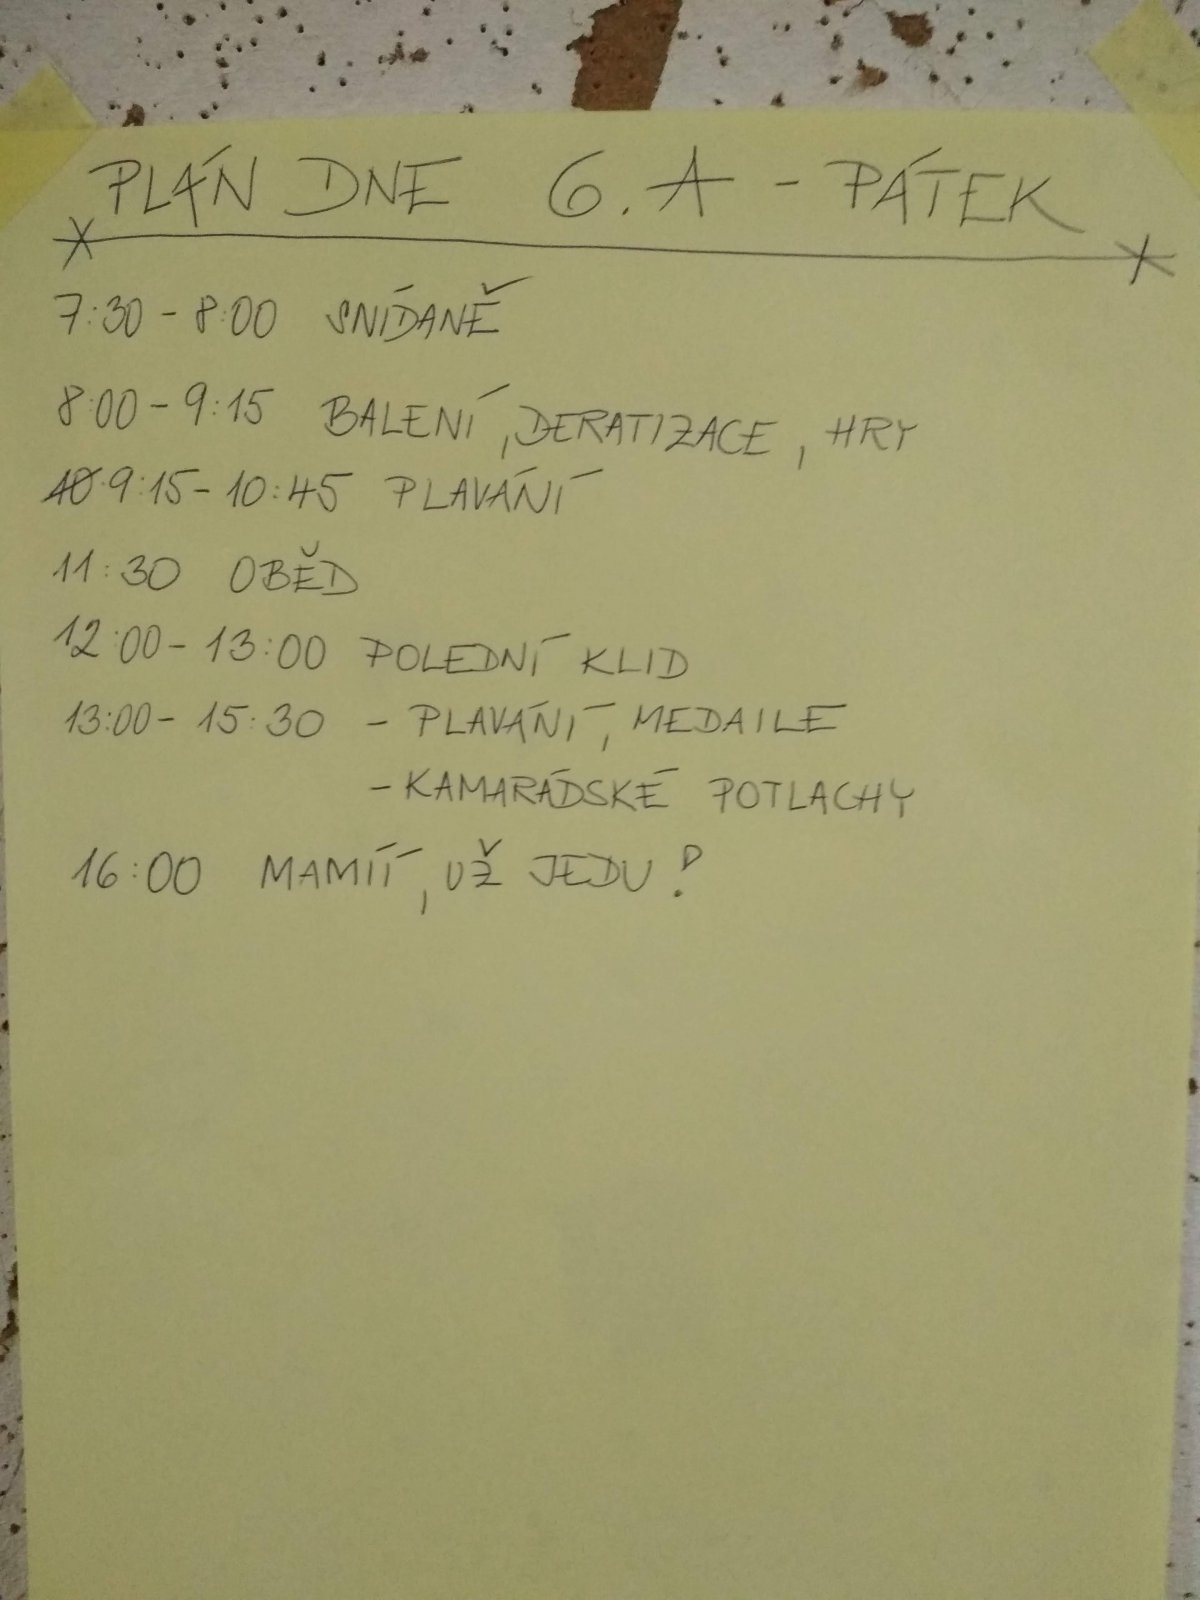 PLÁN DNE 6.A - PÁTEK
7:30 - 8:00 SNÍDANĚ
8:00 - 9:15 BALENÍ, DERATIZACE, HRY
9:15 - 10:45 PLAVÁNÍ
11:30 OBĚD
12:00 - 13:00 POLEDNÍ KLID
13:00 - 15:30 - PLAVÁNÍ, MEDAILE
- KAMARÁDSKÉ POTLACHY
16:00 MAMÍÍ, UŽ JEDU!